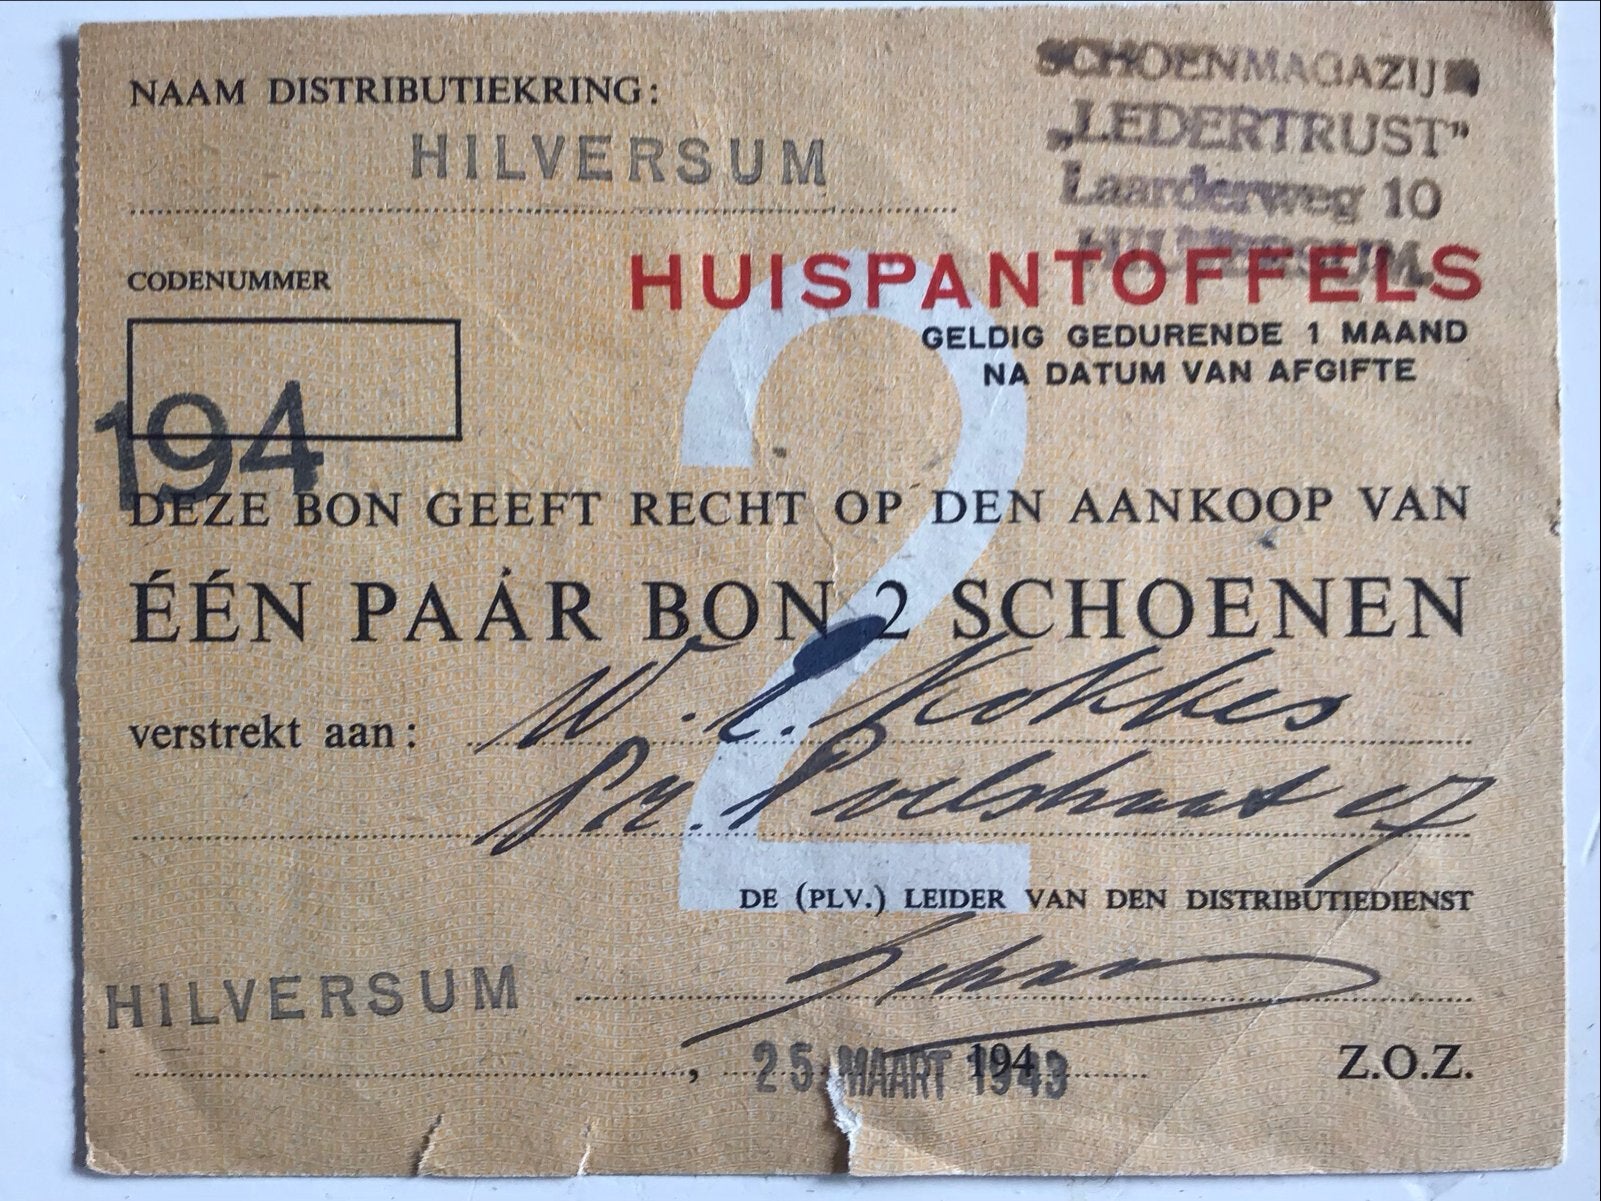 NAAM DISTRIBUTIEKRING:
HILVERSUM
SCHOENMAGAZIJN
„LEDERTRUST”
Laarderweg 10
HILVERSUM.
CODENUMMER
194
HUISPANTOFFELS
GELDIG GEDURENDE 1 MAAND
NA DATUM VAN AFGIFTE
DEZE BON GEEFT RECHT OP DEN AANKOOP VAN
ÉÉN PAAR BON 2 SCHOENEN
2
verstrekt aan: W. L. Kokkes
DE (PLV.) LEIDER VAN DEN DISTRIBUTIEDIENST
HILVERSUM
, 25 MAART 1943 194
Z.O.Z.